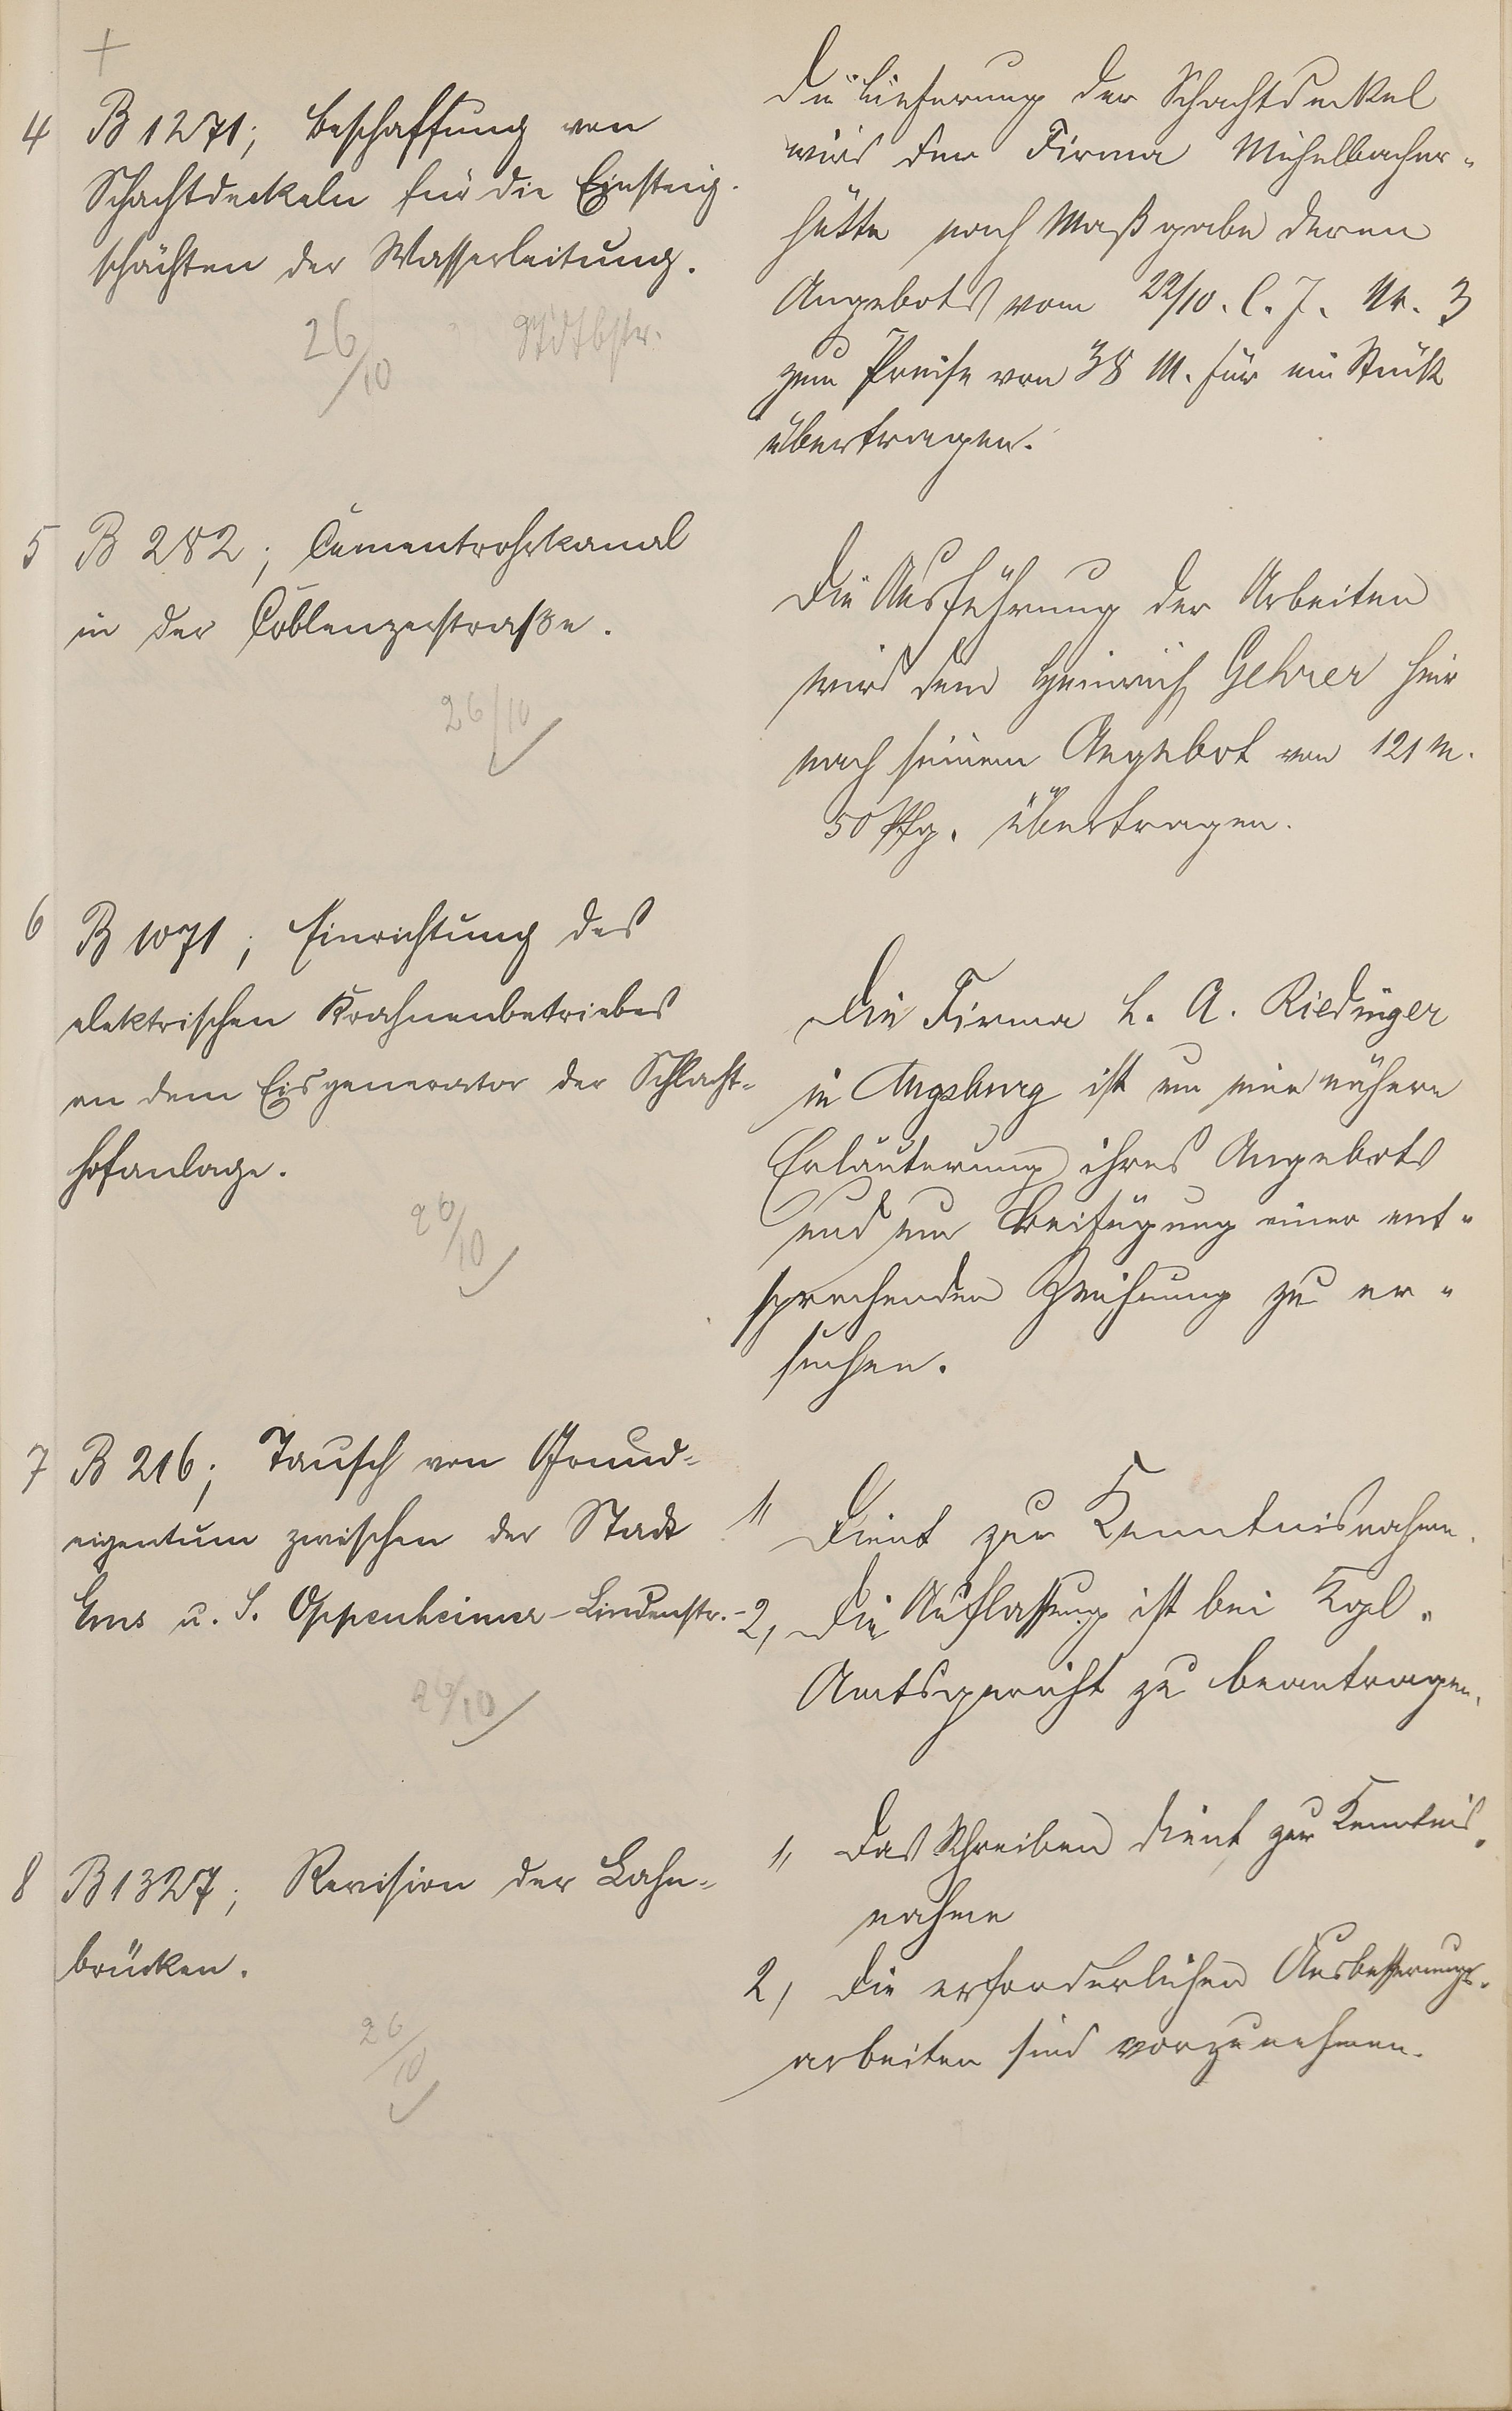 +
4 B 1271; Beschaffung von
Schachtdeckeln für die Einsteig-
schächten der Wasserleitung.
26/10
Die Lieferung der Schachtdeckel
wird der Firma Michelbacher-
hütte nach Maßgabe deren
Angebots vom 22/10. l. J. Nr. 3
zum Preise von 38 M. für ein Stück
übertragen.
5 B 282; Cementrohrkanal
in der Coblenzerstraße.
26/10
Die Ausführung der Arbeiten
wird dem Heinrich Gehrer hier
nach seinem Angebot von 121 M.
50 Pfg. übertragen.
6 B 1071; Einrichtung des
elektrischen Krahnenbetriebes
an dem Eisgenerator der Schlacht-
hofanlage.
26/10
Die Firma L. A. Riedinger
in Augsburg ist um eine nähere
Erläuterung ihres Angebots
und um Beifügung einer ent-
sprechenden Zeichnung zu er-
suchen.
7 B 216; Tausch von Grund-
eigentum zwischen der Stadt
Ems u. S. Oppenheimer - Lindenstr. -
26/10
1, Dient zur Kenntnisnahme.
2, Die Auflassung ist bei Kgl.
Amtsgericht zu beantragen.
8 B 1327; Revision der Lahn-
brücken.
26/10
1, Das Schreiben dient zur Kenntnis-
nahme
2, Die erforderlichen Ausbesserungs-
arbeiten sind vorzunehmen.